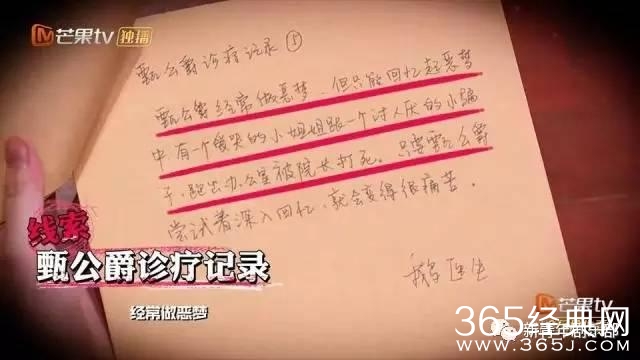 芒果tv 独播
甄公爵诊疗记录 ⑤
甄公爵经常做恶梦，但只能回忆起恶梦
中有一个爱哭的小姐姐跟一个讨人厌的小骗
子，跑出办公室被院长打死。只要甄公爵
尝试着深入回忆，就会变得很痛苦。
医生
线索
甄公爵诊疗记录
经常做恶梦
芒果tv
365经典网
www.365J.com